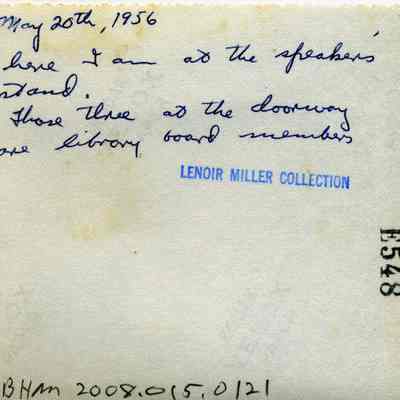 May 20th, 1956
here I am at the speakers'
stand.
Those three at the doorway
are library board members
LENOIR MILLER COLLECTION
E548
BHM 2008.015.0121